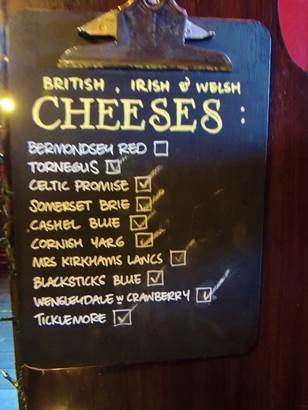 BRITISH, IRISH & WELSH
CHEESES:
BERMONDSEY RED
TORNEGUS
CELTIC PROMISE
SOMERSET BRIE
CASHEL BLUE
CORNISH YARG
MRS KIRKHAMS LANCS
BLACKSTICKS BLUE
WENSLEYDALE W CRANBERRY
TICKLEMORE